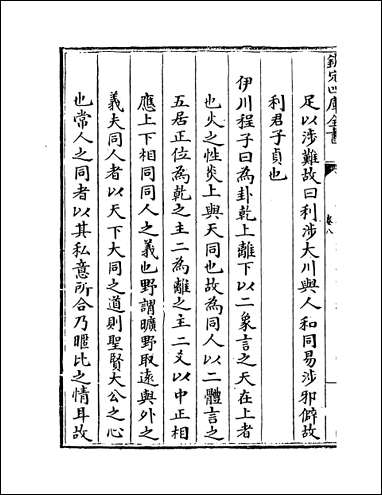 欽定四庫全書
卷八
足以涉難故曰利涉大川與人和同易涉邪僻故
利君子貞也
伊川程子曰為卦乾上離下以二象言之天在上者
也火之性炎上與天同也故為同人以二體言之
五居正位為乾之主二為離之主二爻以中正相
應上下相同同人之義也野謂曠野取遠與外之
義夫同人者以天下大同之道則聖賢大公之心
也常人之同者以其私意所合乃暱比之情耳故